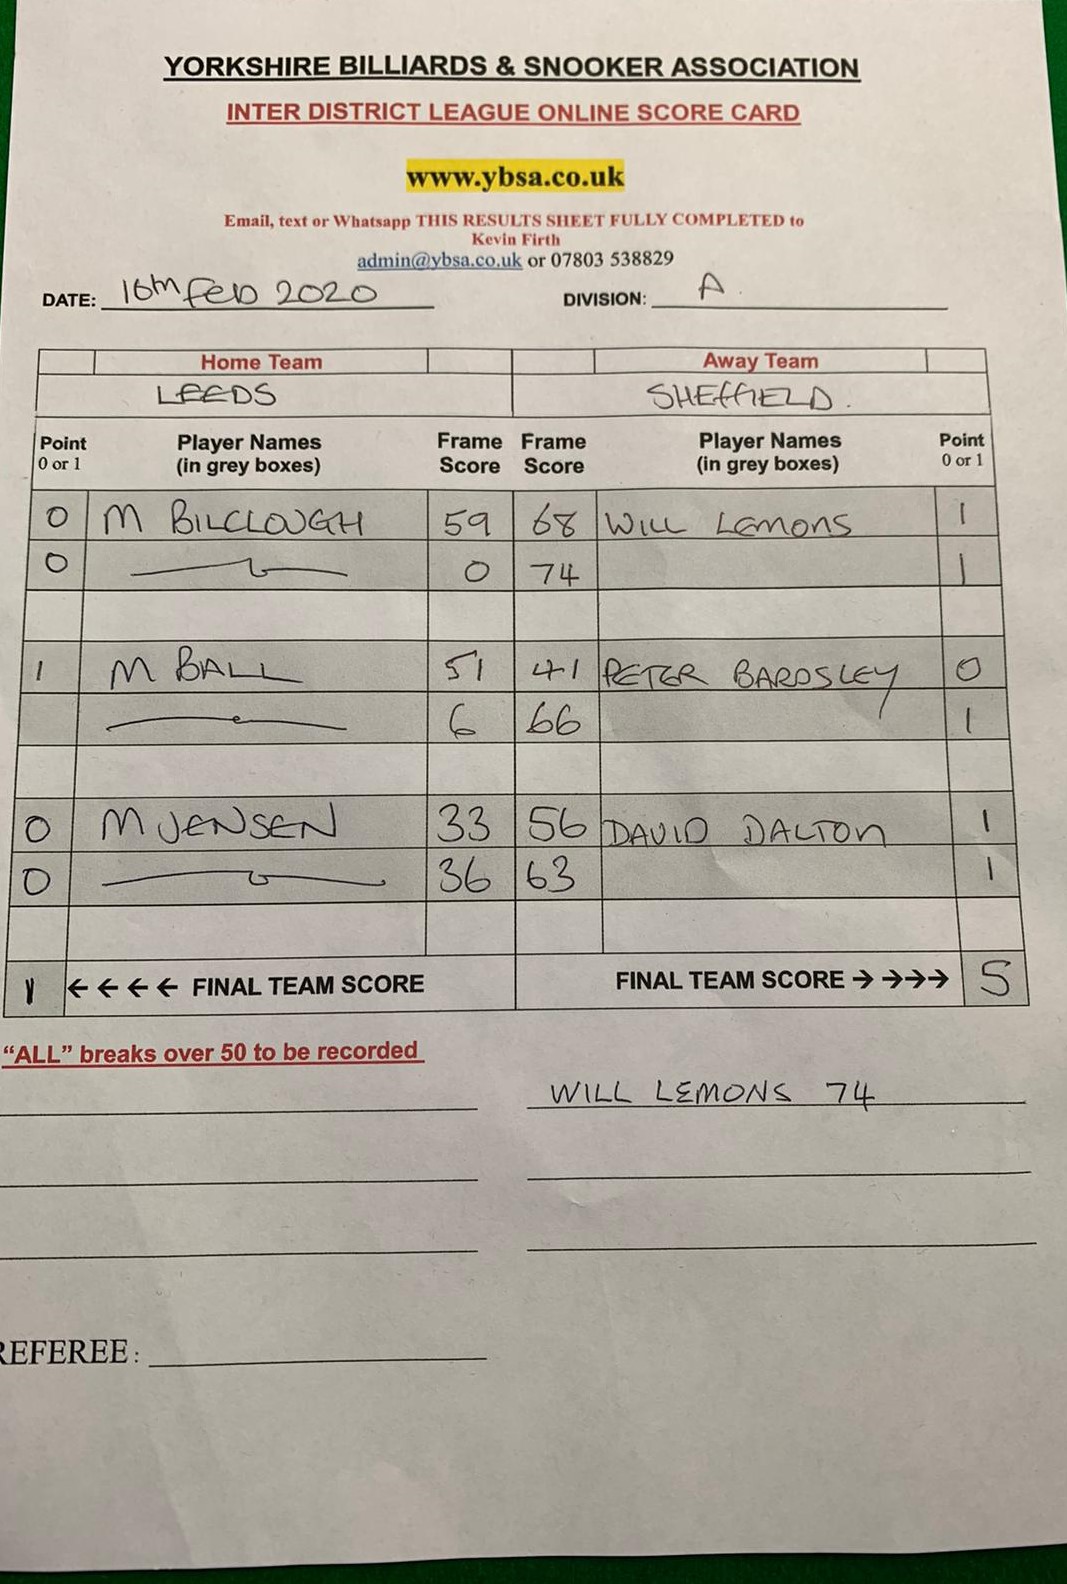 YORKSHIRE BILLIARDS & SNOOKER ASSOCIATION
INTER DISTRICT LEAGUE ONLINE SCORE CARD
www.ybsa.co.uk
Email, text or Whatsapp THIS RESULTS SHEET FULLY COMPLETED to
Kevin Firth
admin@ybsa.co.uk or 07803 538829
DATE: 16th Feb 2020 DIVISION: A.
Home Team Away Team
LEEDS SHEFFIELD.
Point Player Names Frame Frame Player Names Point
0 or 1 (in grey boxes) Score Score (in grey boxes) 0 or 1
0 M BILCLOUGH 59 68 WILL LEMONS 1
0 0 74 1
1 M BALL 51 41 PETER BARDSLEY 0
6 66 1
0 M JENSEN 33 56 DAVID DALTON 1
0 36 63 1
1 ←←←← FINAL TEAM SCORE FINAL TEAM SCORE →→→→ 5
“ALL” breaks over 50 to be recorded
WILL LEMONS 74
REFEREE: